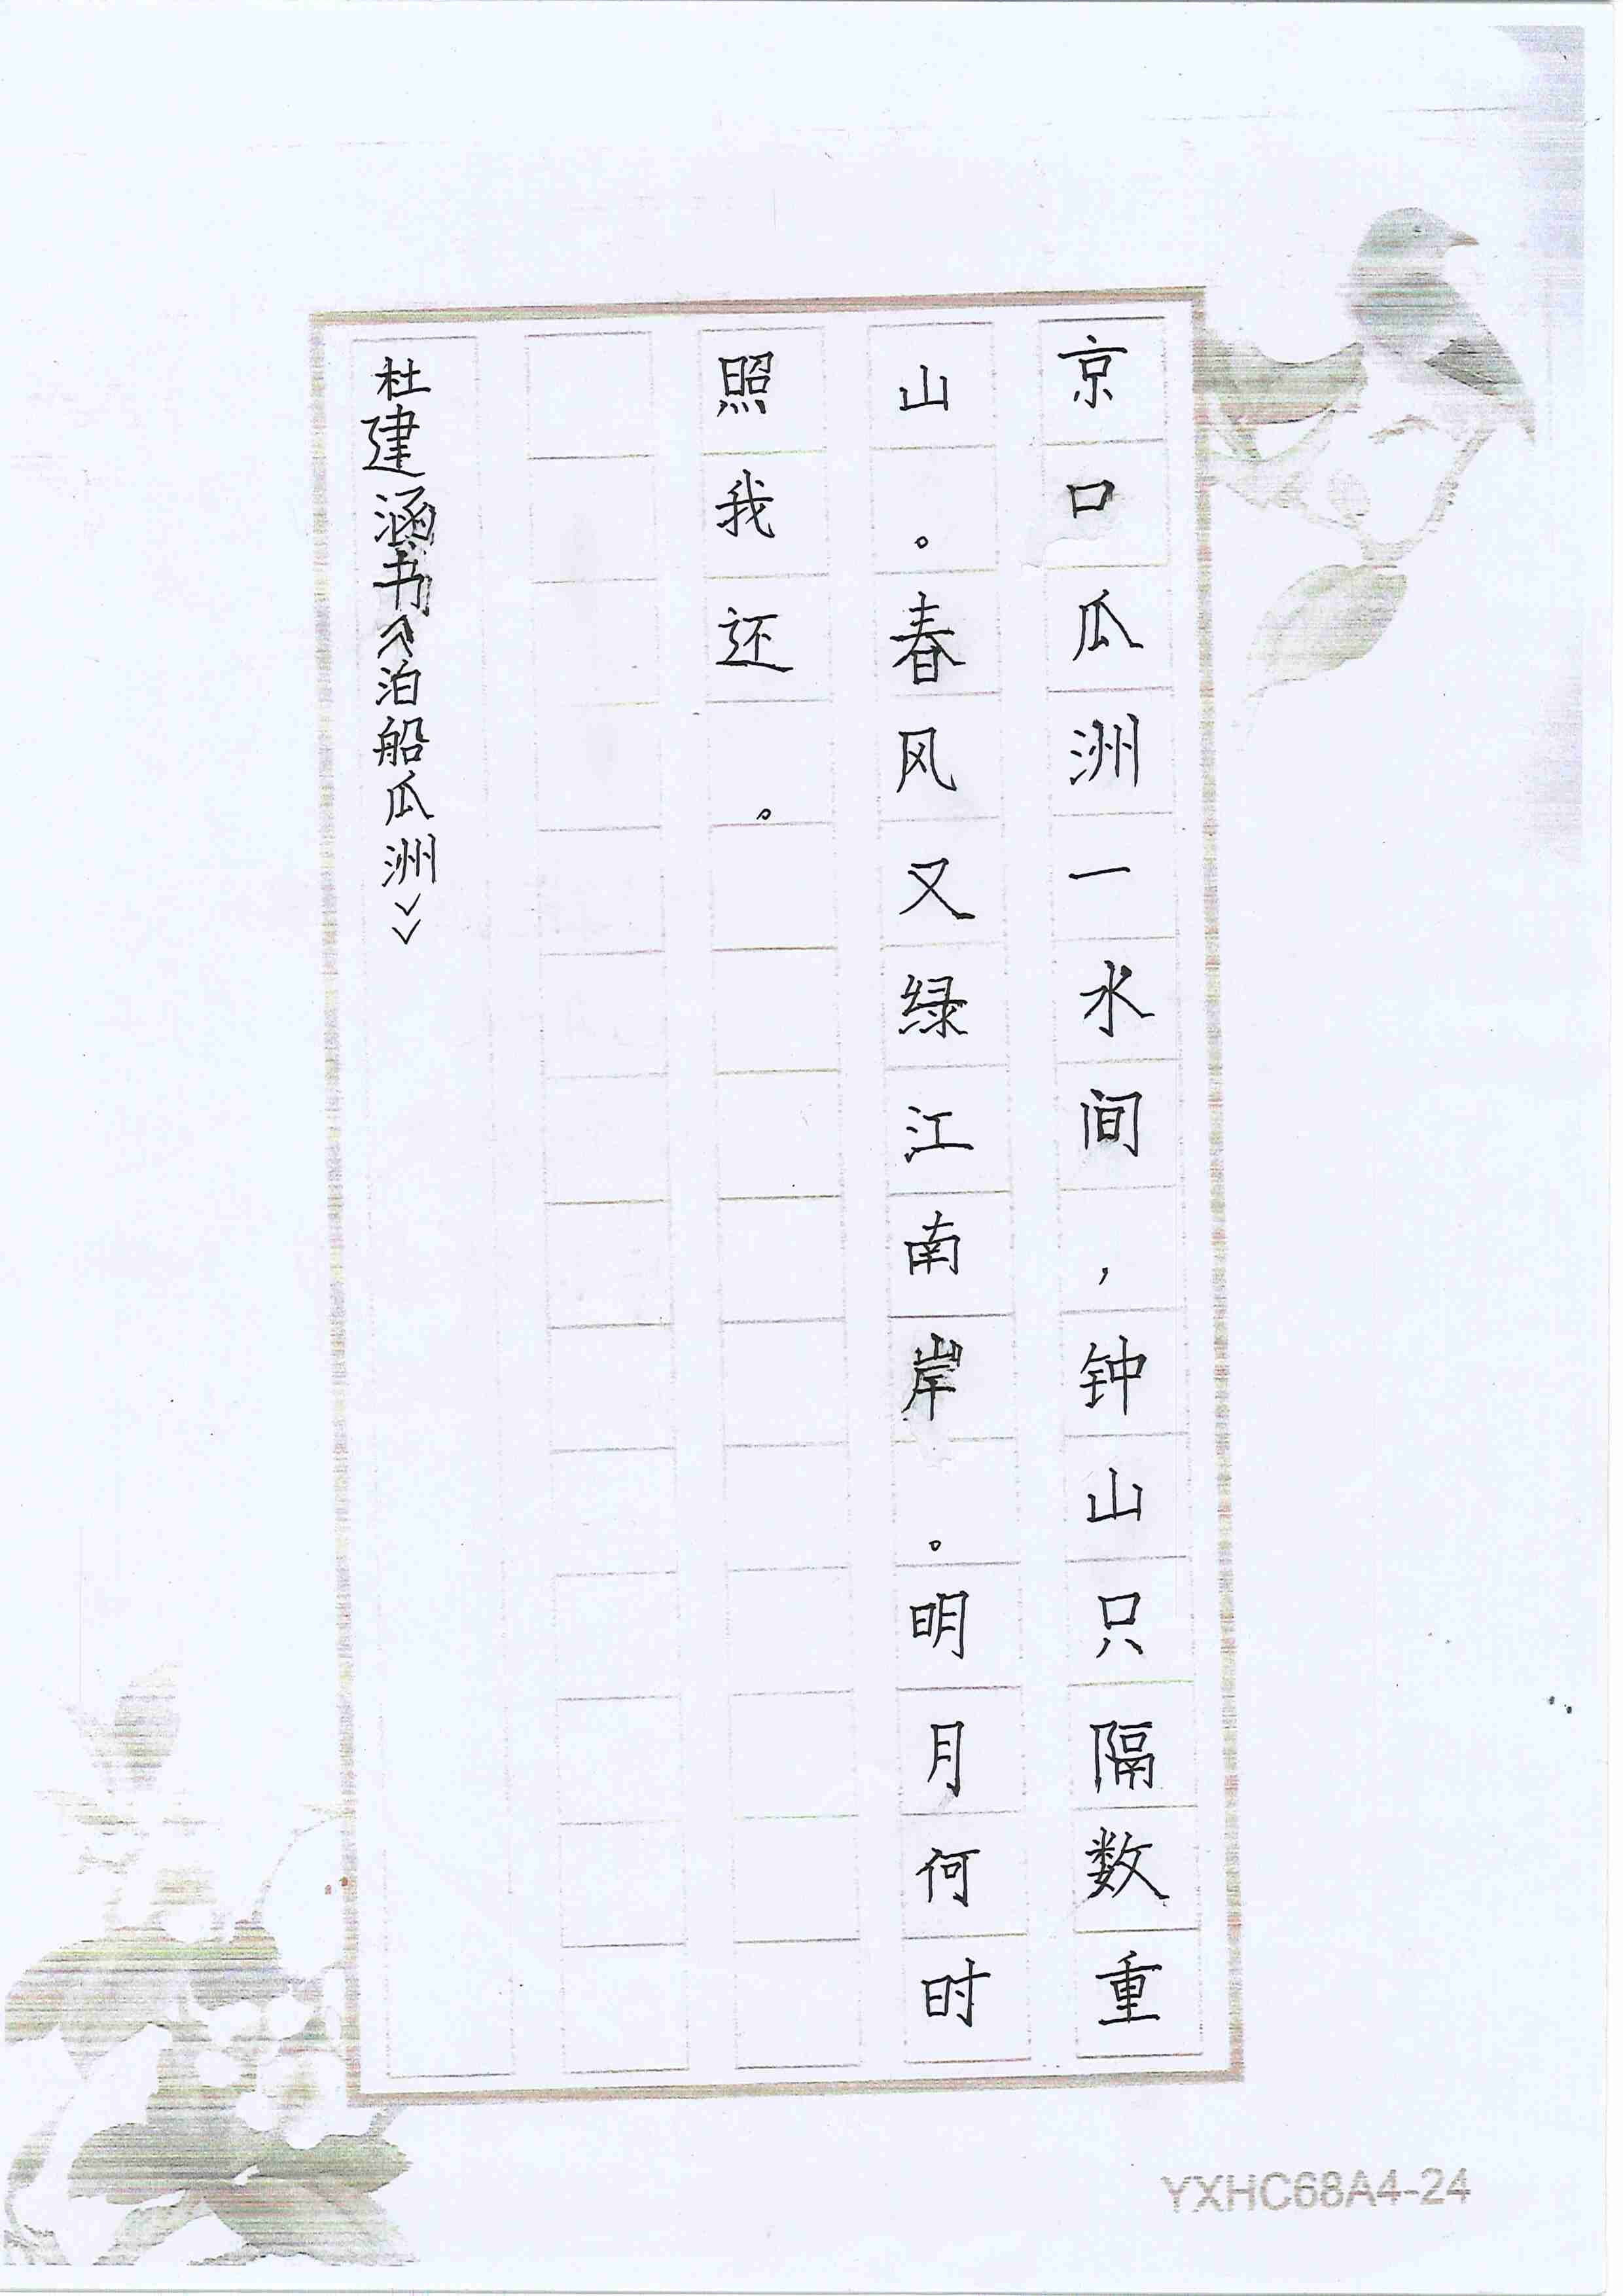 京口瓜洲一水间，钟山只隔数重
山。春风又绿江南岸。明月何时
照我还。
杜建涵书《泊船瓜洲》
YXHC68A4-24